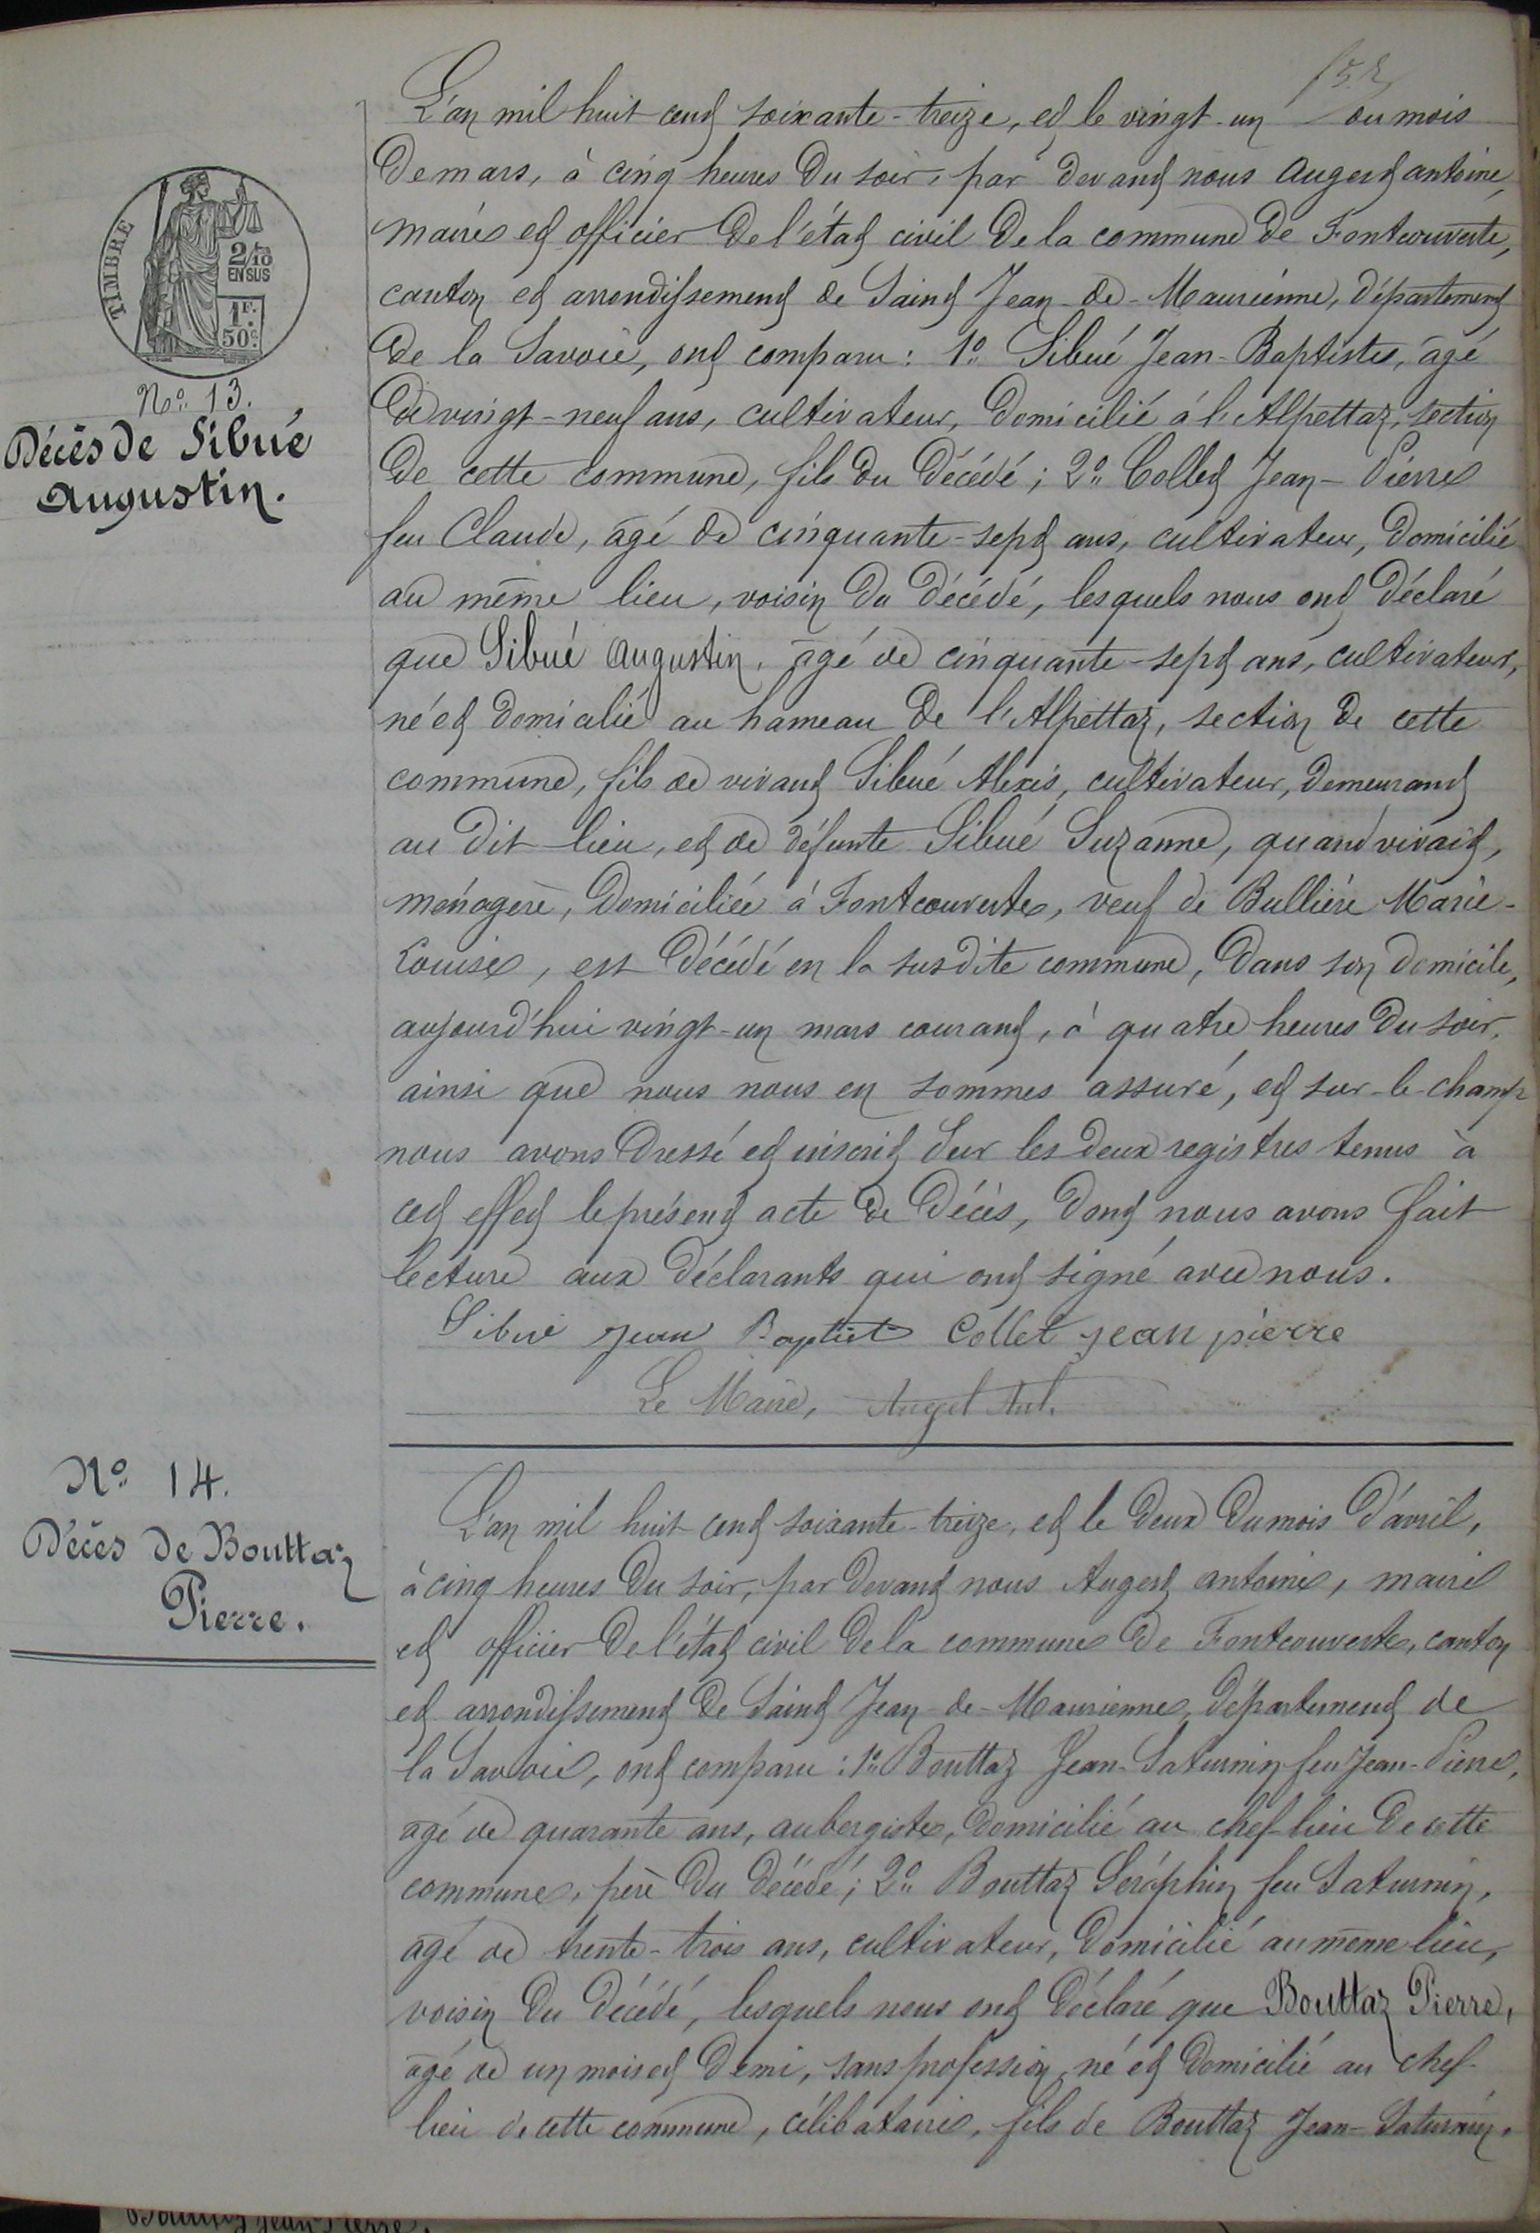 L'an mil huit cent soixante-treize, et le vingt-un du mois
de mars, à cinq heures du soir, par devant nous Augert antoine,
maire et officier de l'état civil de la commune de Fontcouverte,
canton et arrondissement de Saint Jean-de-Maurienne, département
de la Savoie, ont comparu : 1° Sibué Jean-Baptiste, âgé
de vingt-neuf ans, cultivateur, domicilié à l'Alpettaz, section
de cette commune, fils du décédé ; 2° Collet Jean-Pierre
feu Claude, âgé de cinquante-sept ans, cultivateur, domicilié
au même lieu, voisin du décédé, lesquels nous ont déclaré
que Sibué Augustin, âgé de cinquante-sept ans, cultivateur,
né et domicilié au hameau de l'Alpettaz, section de cette
commune, fils de vivant Sibué Alexis, cultivateur, demeurant
au dit lieu, et de défunte Sibué Suzanne, quand vivait,
ménagère, domiciliée à Fontcouverte, veuf de Bullière Marie-
Louise, est décédé en la susdite commune, dans son domicile,
aujourd'hui vingt-un mars courant, à quatre heures du soir,
ainsi que nous nous en sommes assuré, et sur-le-champ
nous avons dressé et inscrit sur les deux registres tenus à
cet effet le présent acte de décès, dont nous avons fait
lecture aux déclarants qui ont signé avec nous.
Sibué jean Baptiste Collet jean pierre
Le Maire, Augert Ant.
TIMBRE
2/10
EN SUS
1F.
50c.
No. 13.
Décès de Sibué
Augustin.
No. 14.
Décès de Bouttaz
Pierre.
L'an mil huit cent soixante-treize, et le deux du mois d'avril,
à cinq heures du soir, par devant nous Augert antoine, maire
et officier de l'état civil de la commune de Fontcouverte, canton
et arrondissement de Saint Jean-de-Maurienne, département de
la Savoie, ont comparu : 1° Bouttaz Jean-Saturnin feu Jean-Pierre,
âgé de quarante ans, aubergiste, domicilié au chef-lieu de cette
commune, père du décédé ; 2° Bouttaz Séraphin feu Saturnin,
âgé de trente-trois ans, cultivateur, domicilié au même lieu,
voisin du décédé, lesquels nous ont déclaré que Bouttaz Pierre,
âgé de un mois et demi, sans profession, né et domicilié au chef-
lieu de cette commune, célibataire, fils de Bouttaz Jean-Saturnin,